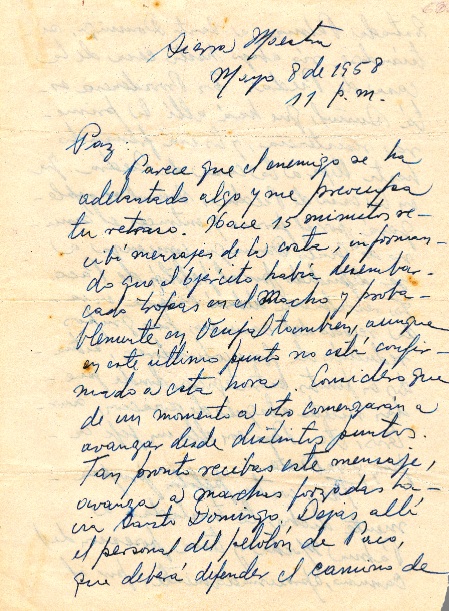 Sierra Maestra
Mayo 8 de 1958
11 p.m.
Paz:
Parece que el enemigo se ha
adelantado algo y me preocupa
tu retraso. Hace 15 minutos re-
cibí mensajes de la costa, informan-
do que el Ejército había desembar-
cado tropas en el Macho y proba-
blemente en Ocujal tambien, aunque
en este último punto no está confir-
mado a esta hora. Considero que
de un momento a otro comenzarán a
avanzar desde distintos puntos.
Tan pronto recibas este mensaje,
avanza a marchas forzadas ha-
cia Santo Domingo. Dejas allí
el personal del pelotón de Paco,
que deberá defender el camino de